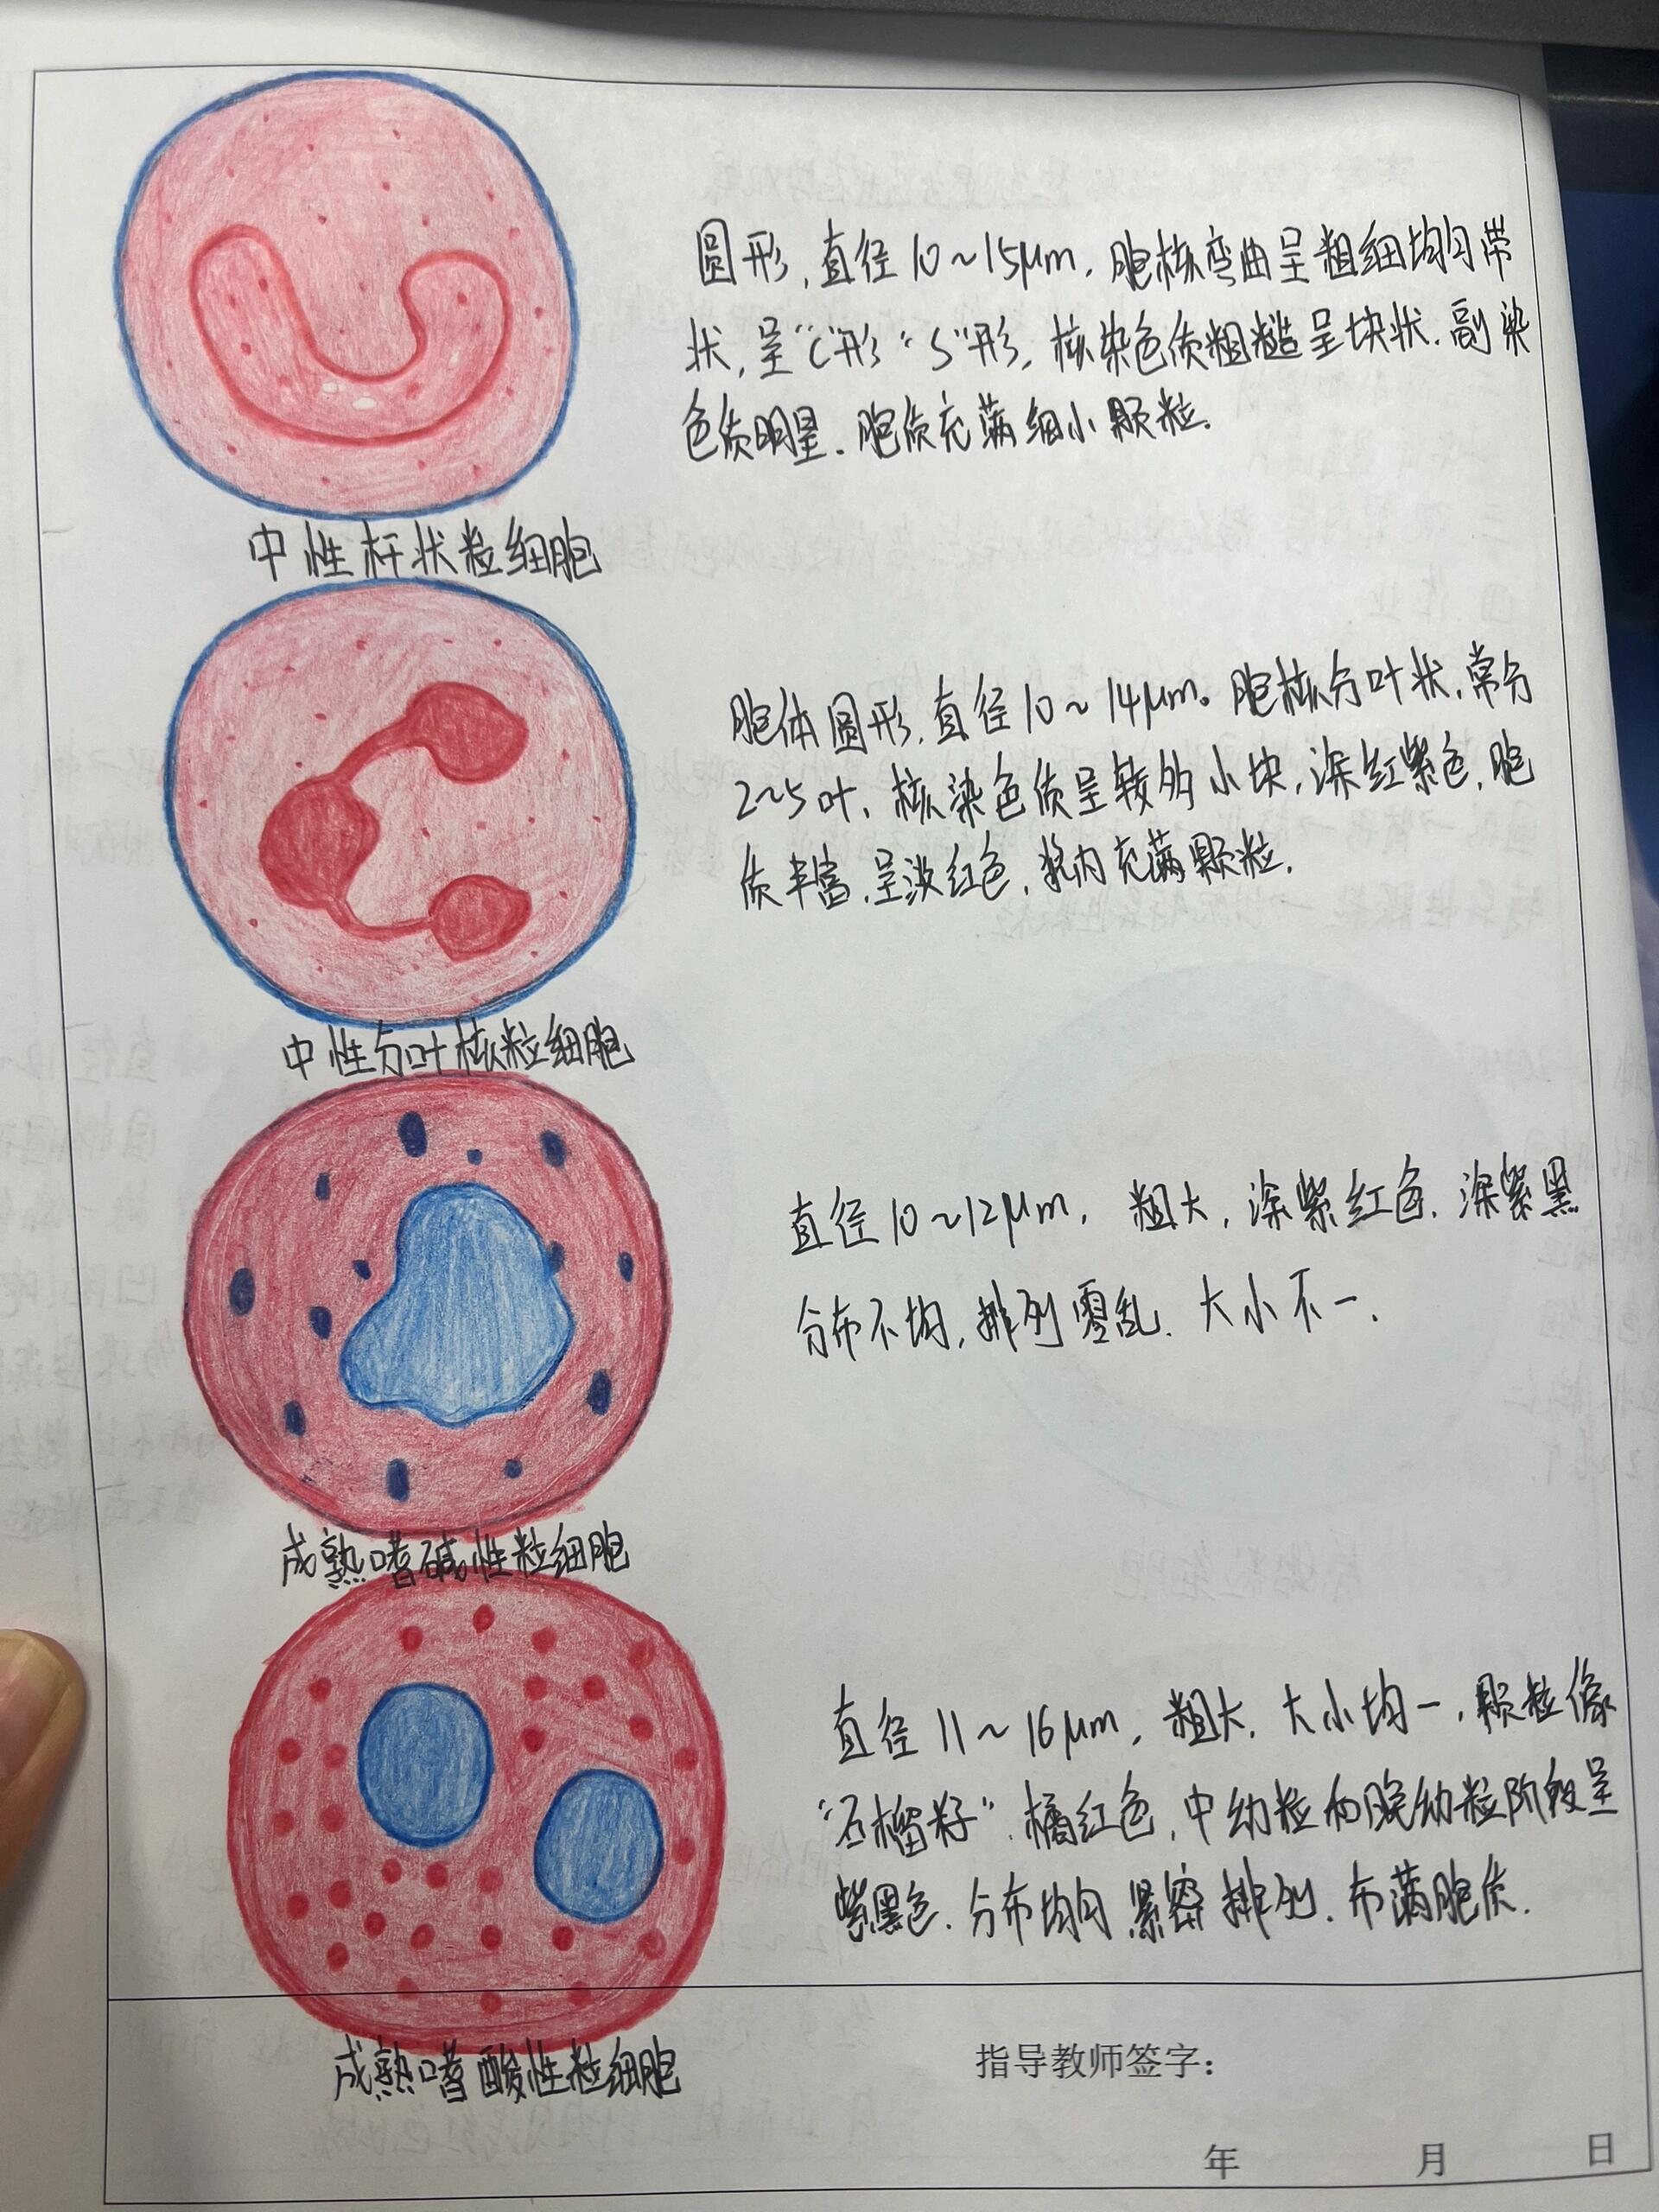 圆形,直径10~15μm,胞核弯曲呈粗细均匀带
状,呈“C”形“S”形,核染色质粗糙呈块状.副染
色质明显.胞质充满细小颗粒.
中性杆状粒细胞
胞体圆形,直径10~14μm。胞核分叶状,常分
2~5叶,核染色质呈较多小块,深红紫色,胞
质丰富,呈淡红色,浆内充满颗粒.
中性分叶核粒细胞
直径10~12μm, 粗大,深紫红色.深紫黑
分布不均,排列零乱.大小不一.
成熟嗜碱性粒细胞
直径11~16μm,粗大.大小均一,颗粒像
“石榴籽”.橘红色,中幼粒和晚幼粒阶段呈
紫黑色.分布均匀 紧密排列.布满胞质.
成熟嗜酸性粒细胞
指导教师签字:
年 月 日